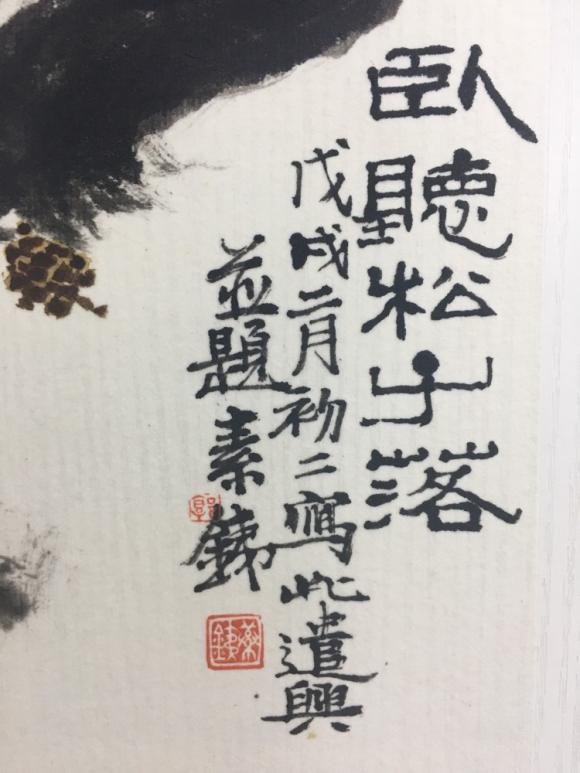 臥聽松子落
戊戌二月初二寫此遣興
並題素銕
素銕